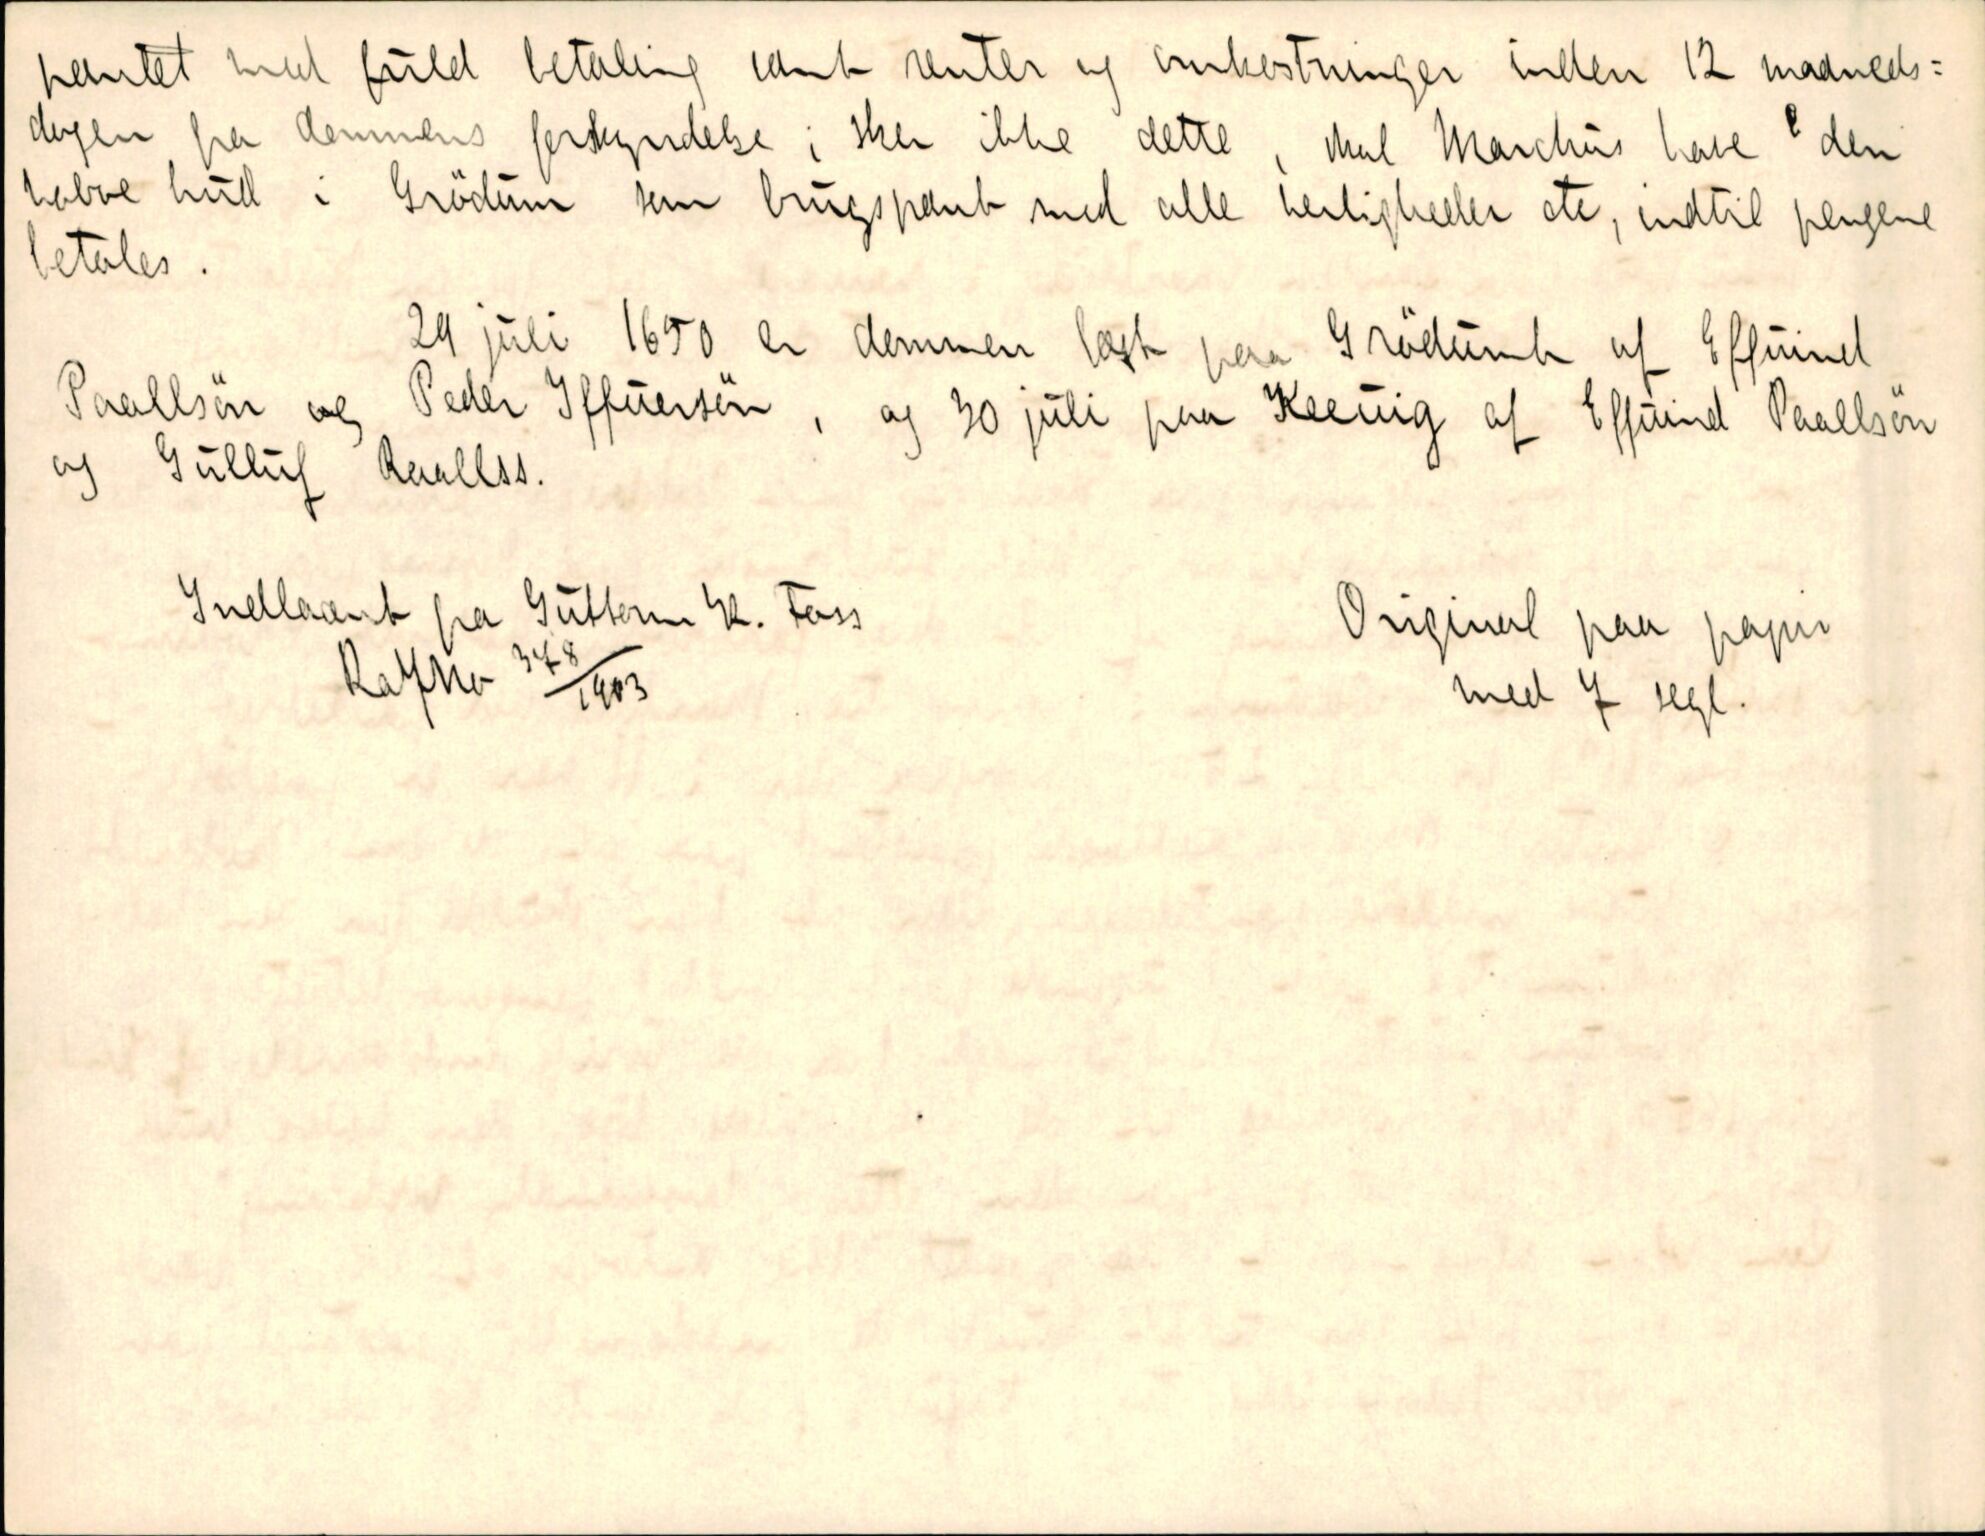 pantet med fuld betaling samt renter og omkostninger inden 12 maaneds=
dagen fra dommens forkyndelse; sker ikke dette, skal Marchus have den
halve hud i Grödum som brugspant med alle herligheder etc, indtil pengene
betales.
29 juli 1650 er dommen læst paa Grödumb af Effuind
Paallsön og Peder Iffuersön, og 30 juli paa Keeuig af Effuind Paallsön
og Gulluf Raallss.
Indlaant fra Guttorm K. Foss
Ra JNo 378/1903
Original paa papir
med 7 segl.